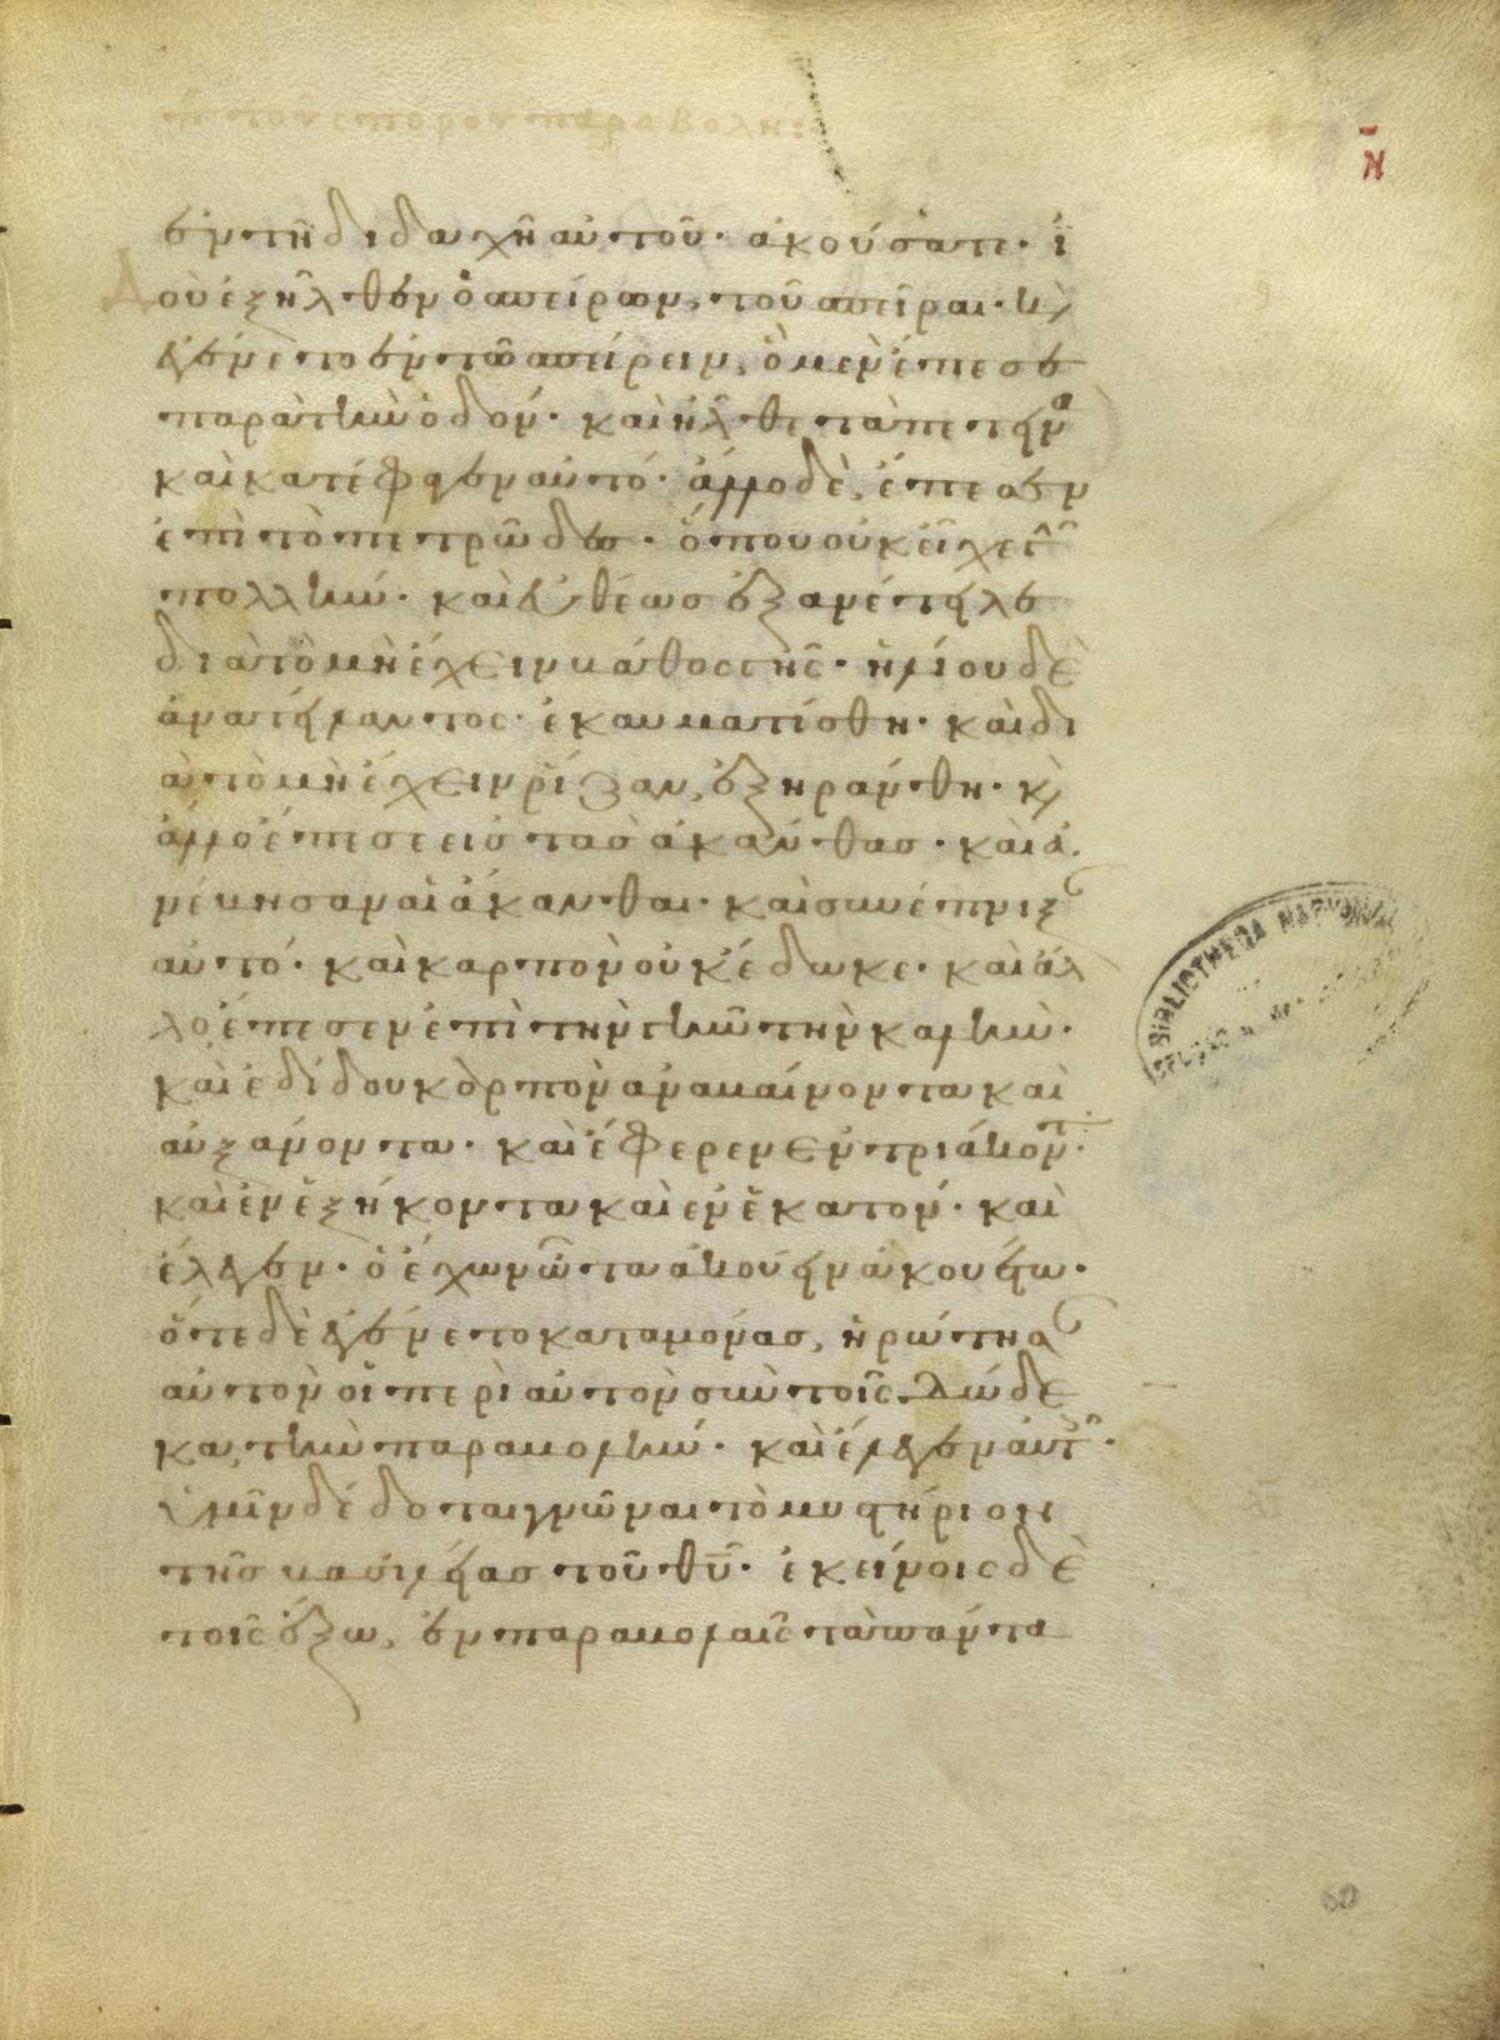 εἰς τὸν σπόρον παραβολή:
Ν
ἐν τῆ διδαχῆ αὐτοῦ· ἀκούσατε· ἰ
δοὺ ἐξῆλθεν ὁ σπείρων, τοῦ σπεῖραι· κ(αὶ)
ἐγένετο ἐν τῶ σπείρειν, ὃ μὲν ἔπεσε
παρὰ τὴν ὁδόν· καὶ ἦλθε τὰ πετεινὰ
καὶ κατέφαγεν αὐτό· ἄλλο δὲ, ἔπεσεν
ἐπὶ τὸ πετρῶδες· ὅπου οὐκ εἶχε γῆν
πολλήν· καὶ εὐθέως ἐξανέτειλε
διὰ τὸ μὴ ἔχειν βάθος γῆς· ἡλίου δὲ
ἀνατείλαντος· ἐκαυματίσθη· καὶ δι
ὰ τὸ μὴ ἔχειν ῥίζαν, ἐξηράνθη· κ(αὶ)
ἄλλο ἔπεσεν εἰς τὰς ἀκάνθας· καὶ ἀ
νέβησαν αἱ ἄκανθαι· καὶ συνέπνιξ(αν)
αὐτό· καὶ καρπὸν οὐκ ἔδωκε· καὶ ἄλ
λο ἔπεσεν ἐπὶ τὴν γῆν τὴν καλὴν·
καὶ ἐδίδου κὰρπὸν ἀναβαίνοντα καὶ
αὐξάνοντα· καὶ ἔφερεν ἐν τριάκοντ·
καὶ ἐν ἑξήκοντα καὶ ἐν ἑκατόν· καὶ
ἔλεγεν· ὁ ἔχων ὦτα ἀκούειν ἀκουέτω·
ὅτε δὲ ἐγένετο καταμόνας, ἠρώτησ(αν)
αὐτὸν οἱ περὶ αὐτὸν σὺν τοῖς δώδε
κα, τὴν παραβολήν· καὶ ἔλεγεν αὐτοῖς·
ὑμῖν δέδοται γνῶναι τὸ μυστήριον
τῆς βασιλείας τοῦ θ̅υ̅· ἐκείνοις δὲ
τοῖς ἔξω, ἐν παραβολαῖς τὰ πάντα
BIBLIOTHECA
60